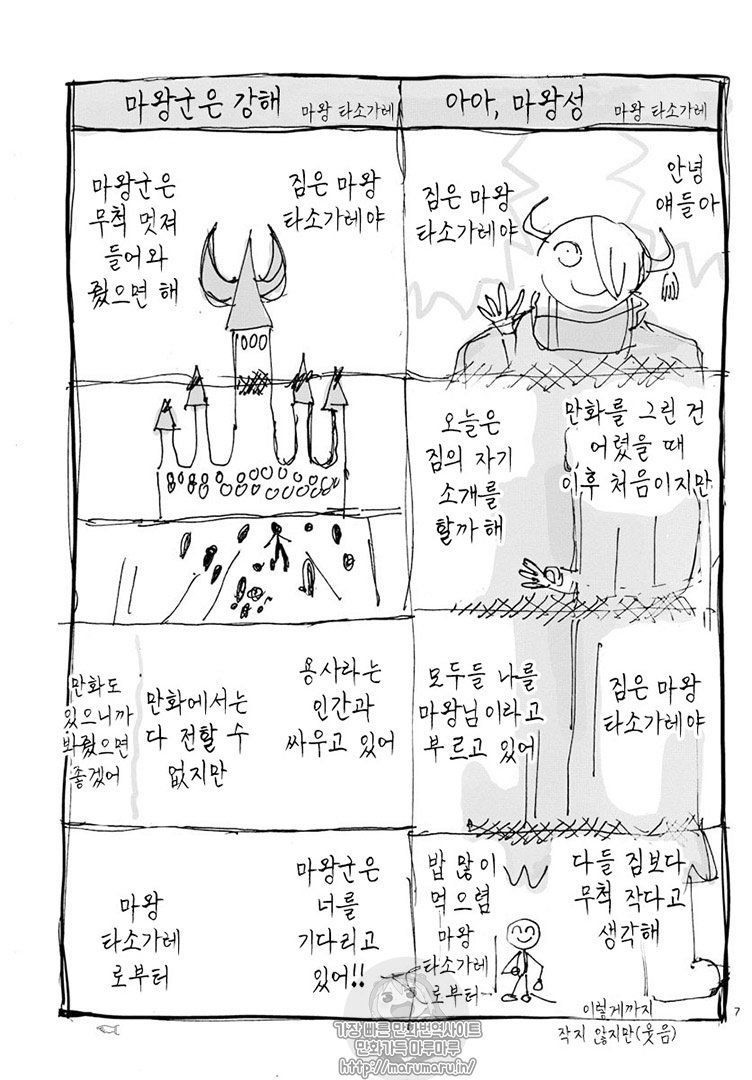 아아, 마왕성
마왕 타소가레
안녕
얘들아
짐은 마왕
타소가레야
만화를 그린 건
어렸을 때
이후 처음이지만
오늘은
짐의 자기
소개를
할까 해
짐은 마왕
타소가레야
모두들 나를
마왕님이라고
부르고 있어
다들 짐보다
무척 작다고
생각해
밥 많이
먹으렴
마왕
타소가레
로부터
이렇게까지
작지 않지만(웃음)
마왕군은 강해
마왕 타소가레
짐은 마왕
타소가레야
마왕군은
무척 멋져
들어와
줬으면 해
용사라는
인간과
싸우고 있어
만화에서는
다 전할 수
없지만
만화도
있으니까
봐줬으면
좋겠어
마왕군은
너를
기다리고
있어!!
마왕
타소가레
로부터
7
가장 빠른 만화번역사이트
만화가득 마루마루
http://marumaru.in/